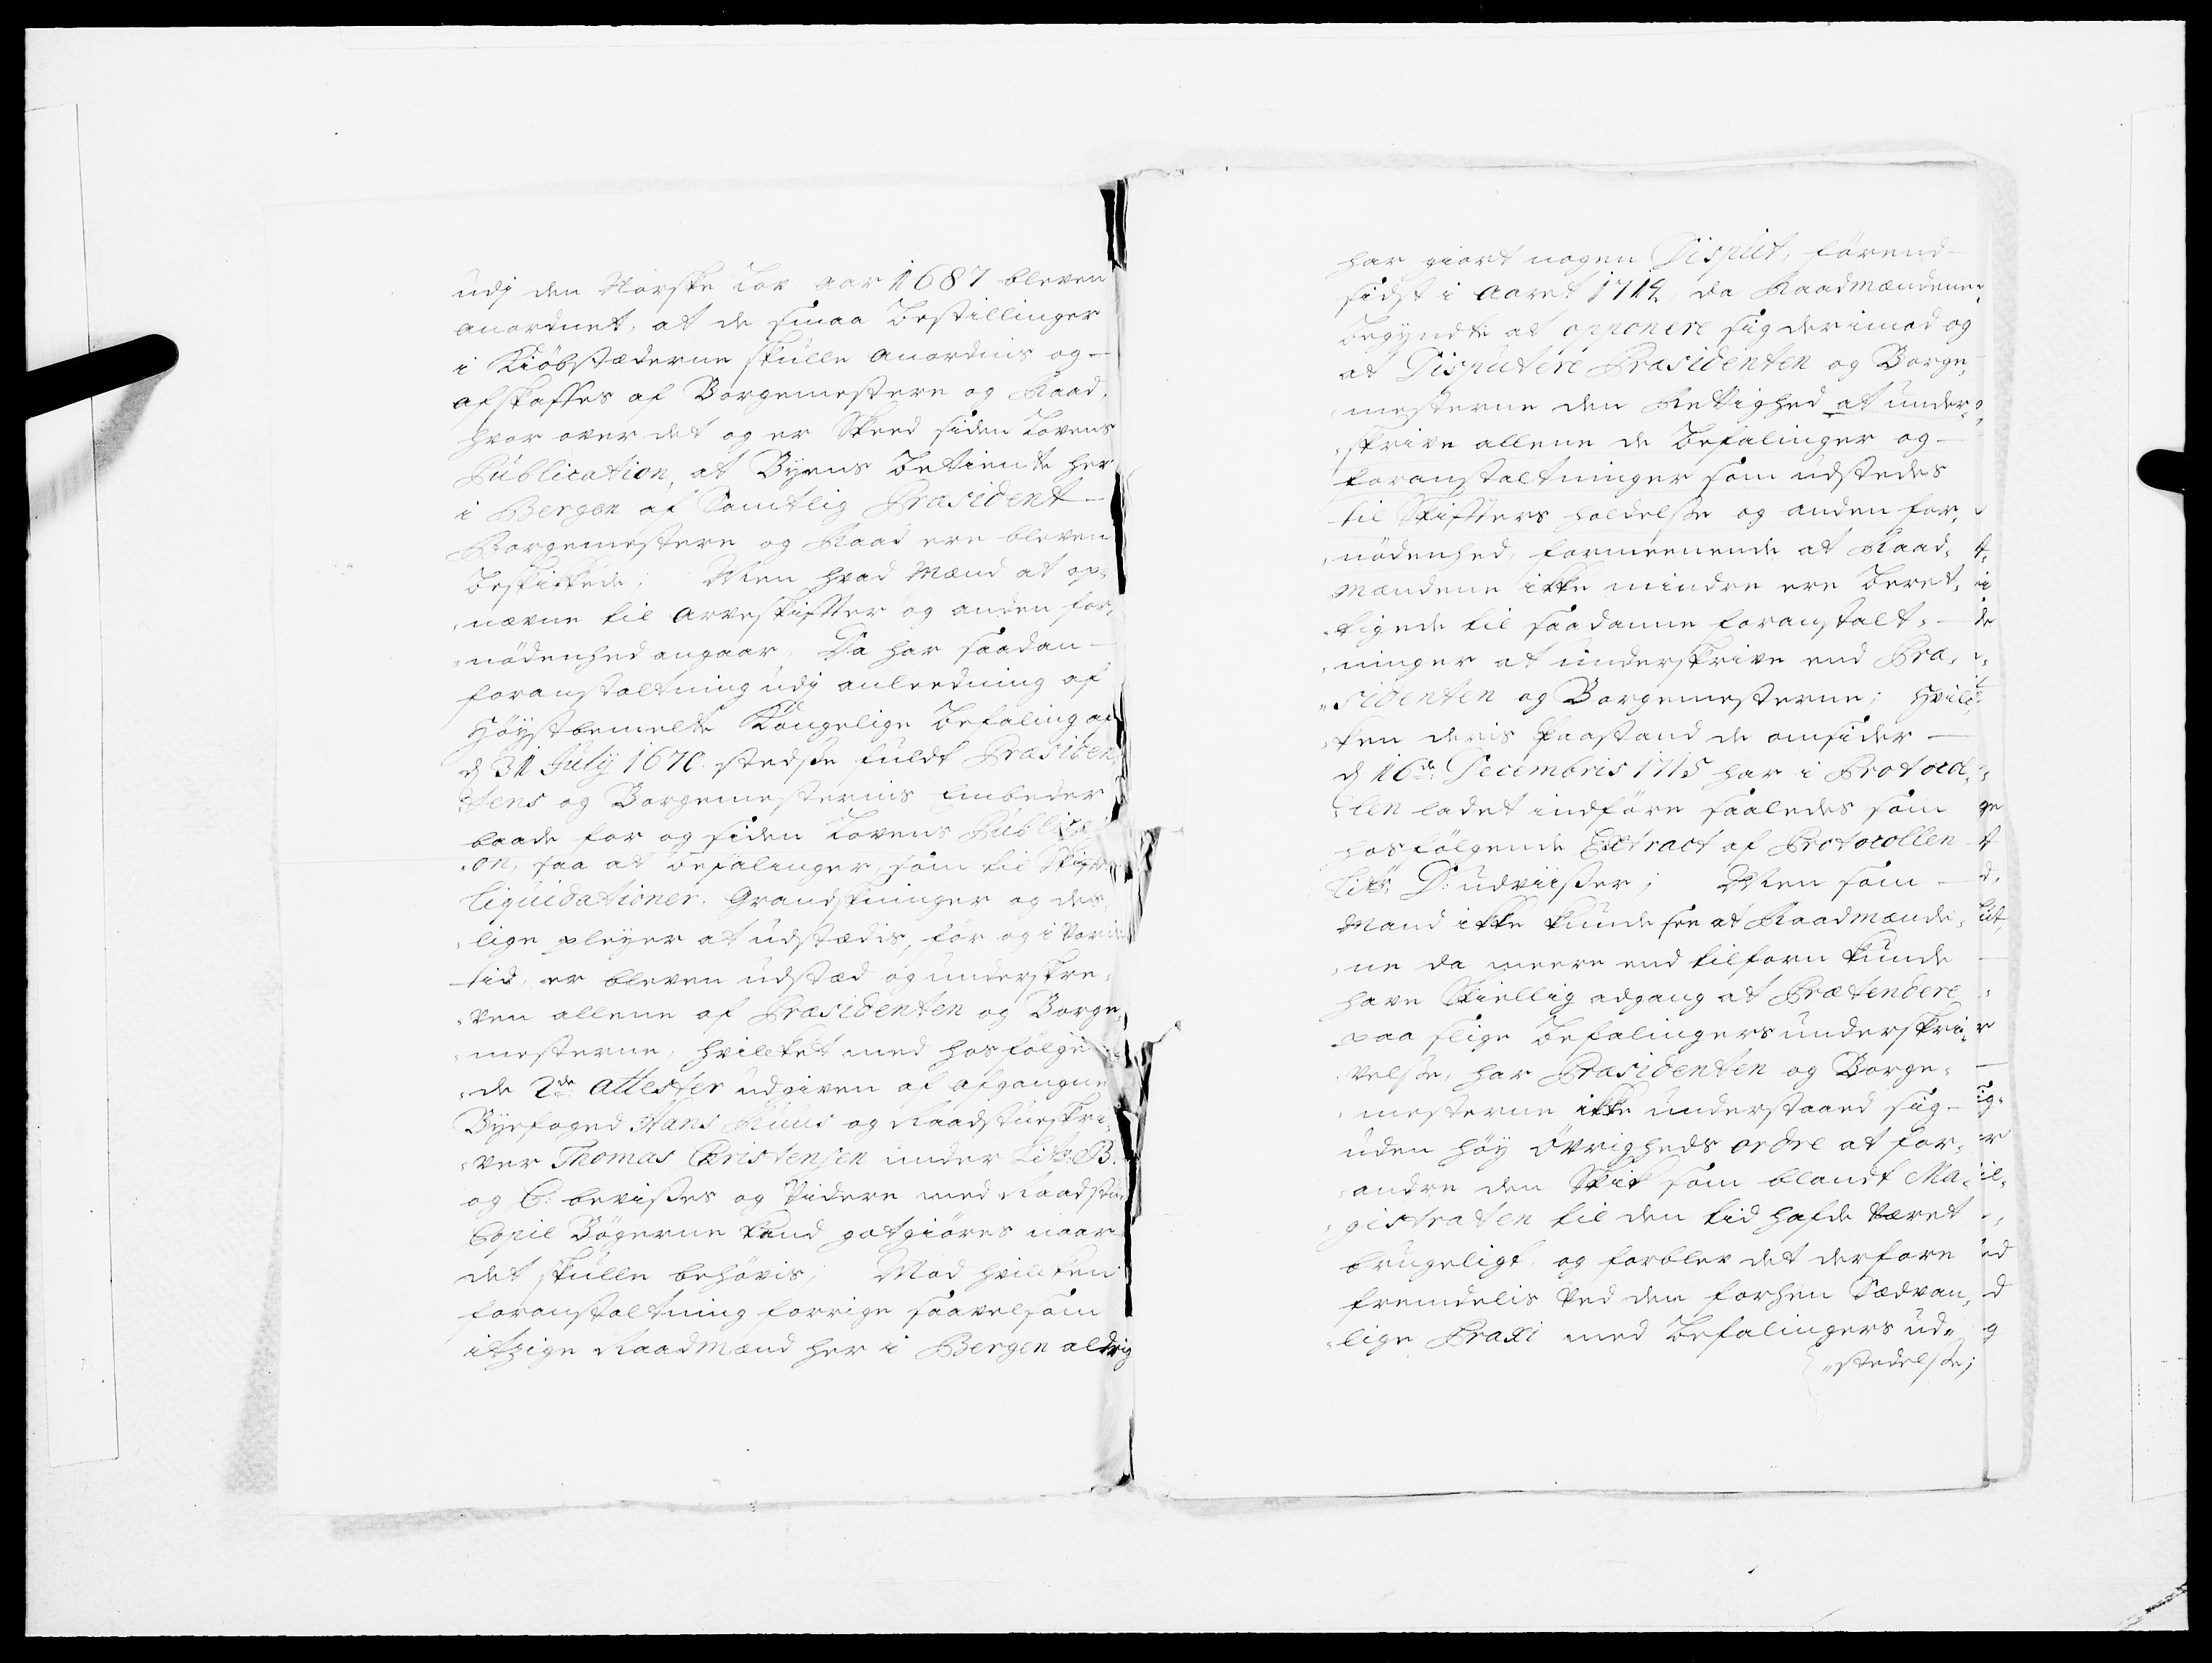 udj den Norske Lov aar 1687 bleven
anordnet, at de smaa Bestillinger
i Kiöbstæderne skulle anordnis og
afskaffes af Borgemestere og Raad,
hvor over det og er Skeed siden Lovens
Publication, at Byens Betiente her
i Bergen af Samtlig Præsident
Borgemestere og Raad ere bleven
Beskikkede; Men hvad Mænd at op-
nævne til Arveskiffter og anden for-
nödenhed angaar, Da har saadan
foranstaltning udj anleedning af
Höystbemelte Kongelige Befaling af
d 31 July 1670 stedse fuldt Præsiden-
tens og Borgemesternis Embeder
baade for og siden Lovens Publicati-
on, saa at Befalinger, som til Skiffter
liquidationer, Grandskninger og des-
lige pleyer at udstædis, för og i Vores
tid, er bleven udstæd og underskre-
ven allene af Præsidenten og Borge-
mesterne, hvilcket med hosfölgen-
de 2de Attester udgiven af afgangne
Byefoged Hans Ruus og Raadstueskri-
ver Thomas Christensen under Litr: B.
og C: bevises og Videre med Raadstue
Copie Bögerne kand gotgiöres naar
det skulle behövis; Mod hvilcken
foranstaltning forrige saavelsom
itzige Raadmænd her i Bergen aldrig
har giort nogen Disput, förend
sidst i Aaret 1712, da Raadmændene
begyndte at opponere sig derimod og
at Disputere Præsidenten og Borge-
mesterne den Rettighed at under-
skrive allene de Befalinger og
foranstaltninger som udstedes
til Skiffters holdelse og anden for-
nödenhed, formeenende at Raad-
mændene ikke mindre ere Beret-
tigede til saadanne foranstalt-
ninger at underskrive end Præ-
sidenten og Borgemesterne; Hvil-
ken deris Paastand de omsider
d 16de Decembris 1715 har i Protocol-
len ladet indföre saaledes som
hosfölgende Extract af Protocollen
Litr: D: udviiser; Men som
Mand ikke kunde see at Raadmænde-
ne da meere end tilforn kunde
have Skiellig adgang at Prætendere
paa slige Befalingers underskri-
velse, har Præsidenten og Borge-
mesterne ikke understaaed sig
uden höy Övrigheds ordre at for-
andre den Skik som blandt Ma-
gistraten til den tid hafde Været
brugeligt, og forblev det derfore
fremdelis Ved den forhen Sædvan-
lige Praxi med Befalingers ud-
stedelse;